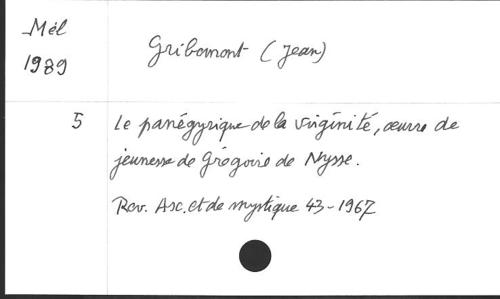 Mél
1989
Gribomont (Jean)
5 Le panégyrique de la virginité, œuvre de
jeunesse de Grégoire de Nysse.
Rev. Asc. et de mystique 43-1967